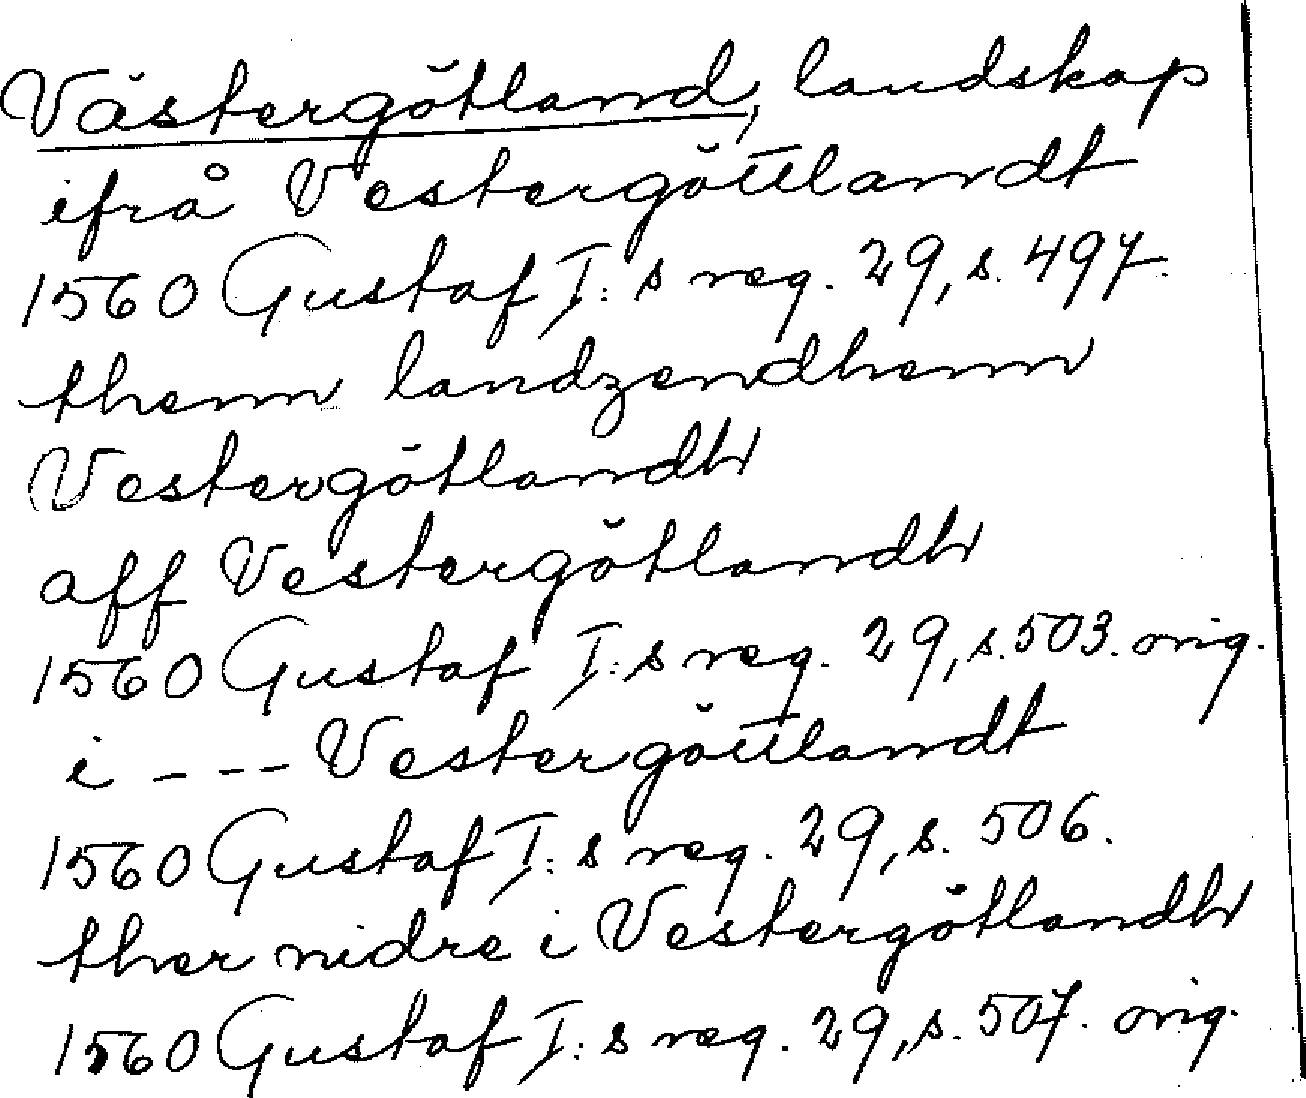 Västergötland, landskap
ifrå Vestergöttlandt
1560 Gustaf I:s reg. 29, s. 497.
thenn landzendhenn
Vestergötlandh
aff Vestergötlandh
1560 Gustaf I:s reg. 29, s. 503. orig.
i ---- Vestergöttlandt
1560 Gustaf I:s reg. 29, s. 506.
ther nidre i Vestergötlandh
1560 Gustaf I:s reg. 29, s. 507. orig.